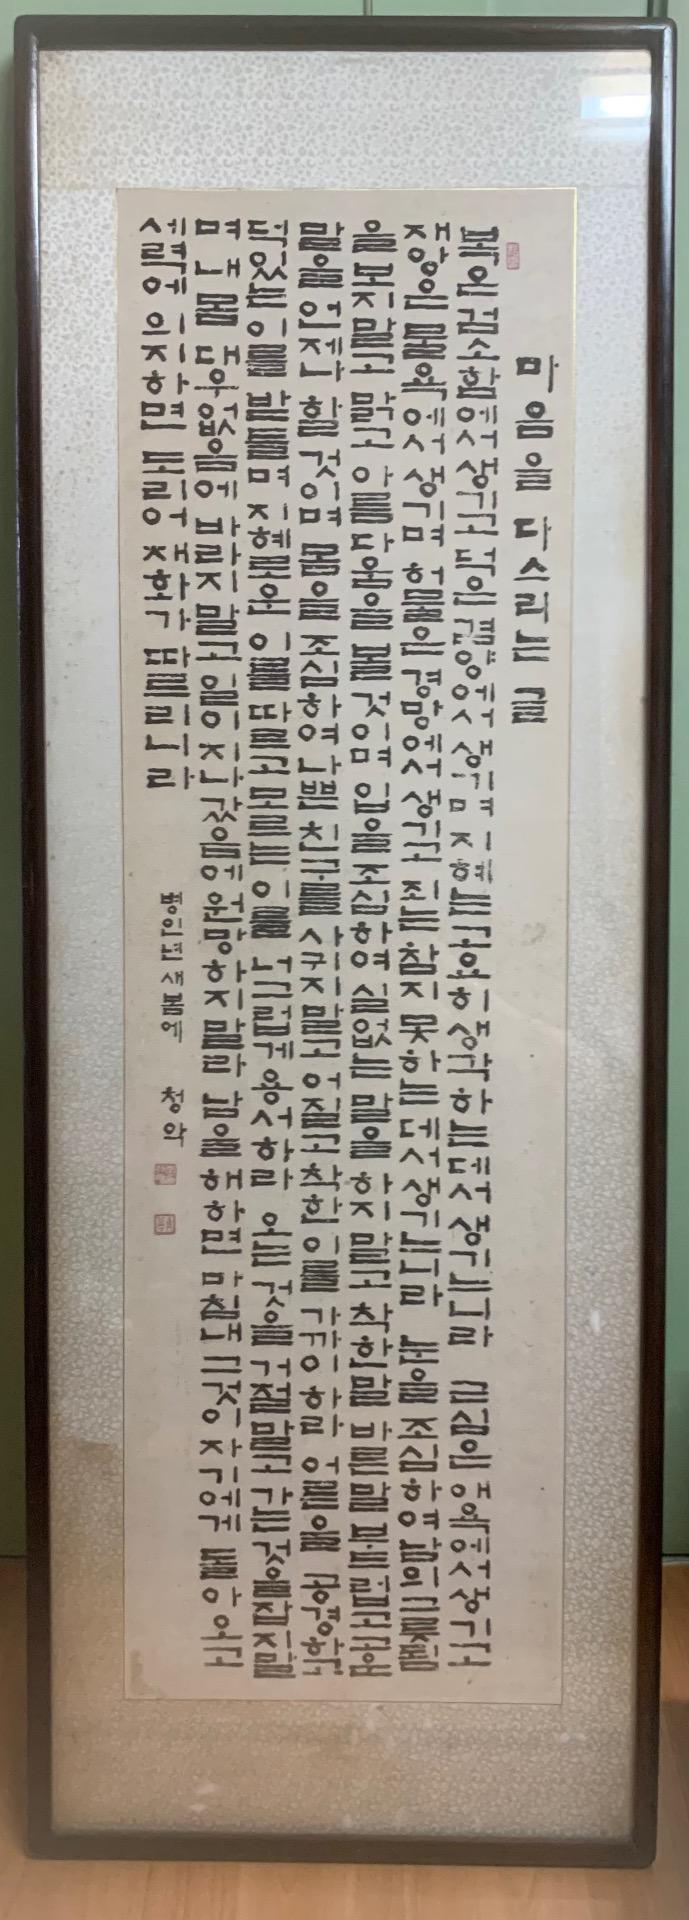 마음을 다스리는 글
복은 검소함에서 생기고 덕은 겸양에서 생기며 지혜는 고요히 생각하는데서 생기느니라 근심은 애욕에서 생기고
재앙은 물욕에서 생기며 허물은 경망에서 생기고 죄는 참지 못하는데서 생기느니라 눈을 조심하여 남의 그릇됨
을 보지말고 맑고 아름다움을 볼것이며 입을 조심하여 실없는 말을 하지 말고 착한말 바른말 부드럽고 고운
말을 언제나 할것이며 몸을 조심하여 나쁜 친구를 사귀지 말고 어질고 착한 이를 가까이 하라 어른을 공경하고
덕있는 이를 받들며 지혜로운 이를 따르고 모르는 이를 너그럽게 용서하라 오는 것을 거절말고 가는 것을 잡지말
며 내몸 대우 없음에 바라지 말고 일이 지나갔음에 원망하지 말라 남을 해하면 마침내 그것이 자기에게 돌아오고
세력에 의지하면 도리어 재화가 따르느니라
병인년 새봄에 청악